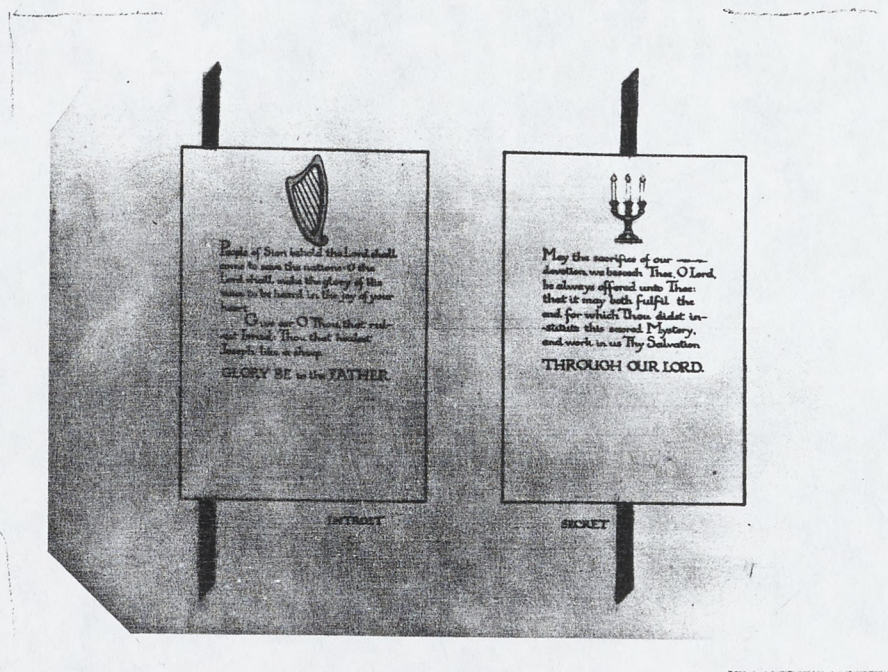 People of Sion behold the Lord shall
come to save the nations & the
Lord shall make the glory of His
voice to be heard in the joy of your
heart.
Give ear O Thou that rul-
Israel: Thou that leadest
Joseph like a sheep.
GLORY BE to the FATHER.
INTROIT
May the sacrifice of our
devotion, we beseech Thee, O Lord,
be always offered unto Thee:
that it may both fulfil the
end for which Thou didst in-
-stitute this sacred Mystery,
and work in us Thy Salvation
THROUGH OUR LORD.
SECRET